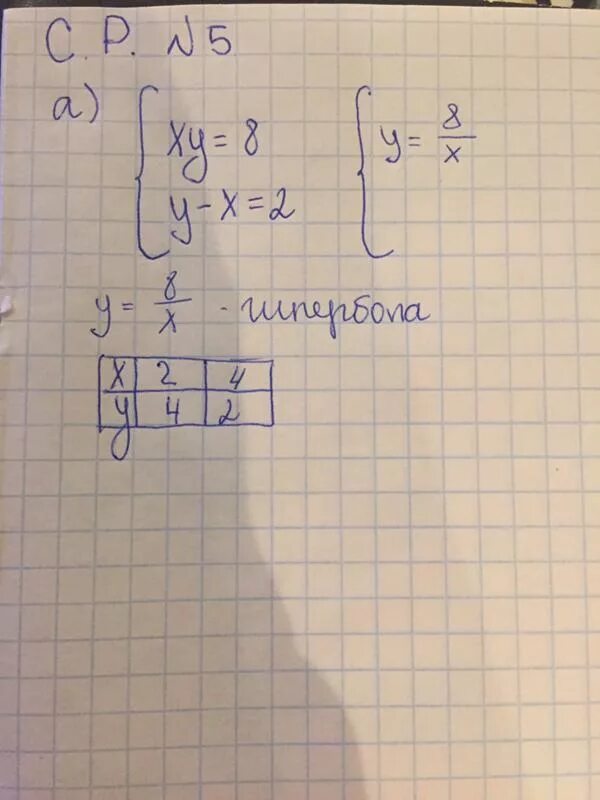 С.Р. №5
а) { xy = 8 { y = 8/x
y - x = 2
y = 8/x - гипербола
x 2 4
y 4 2